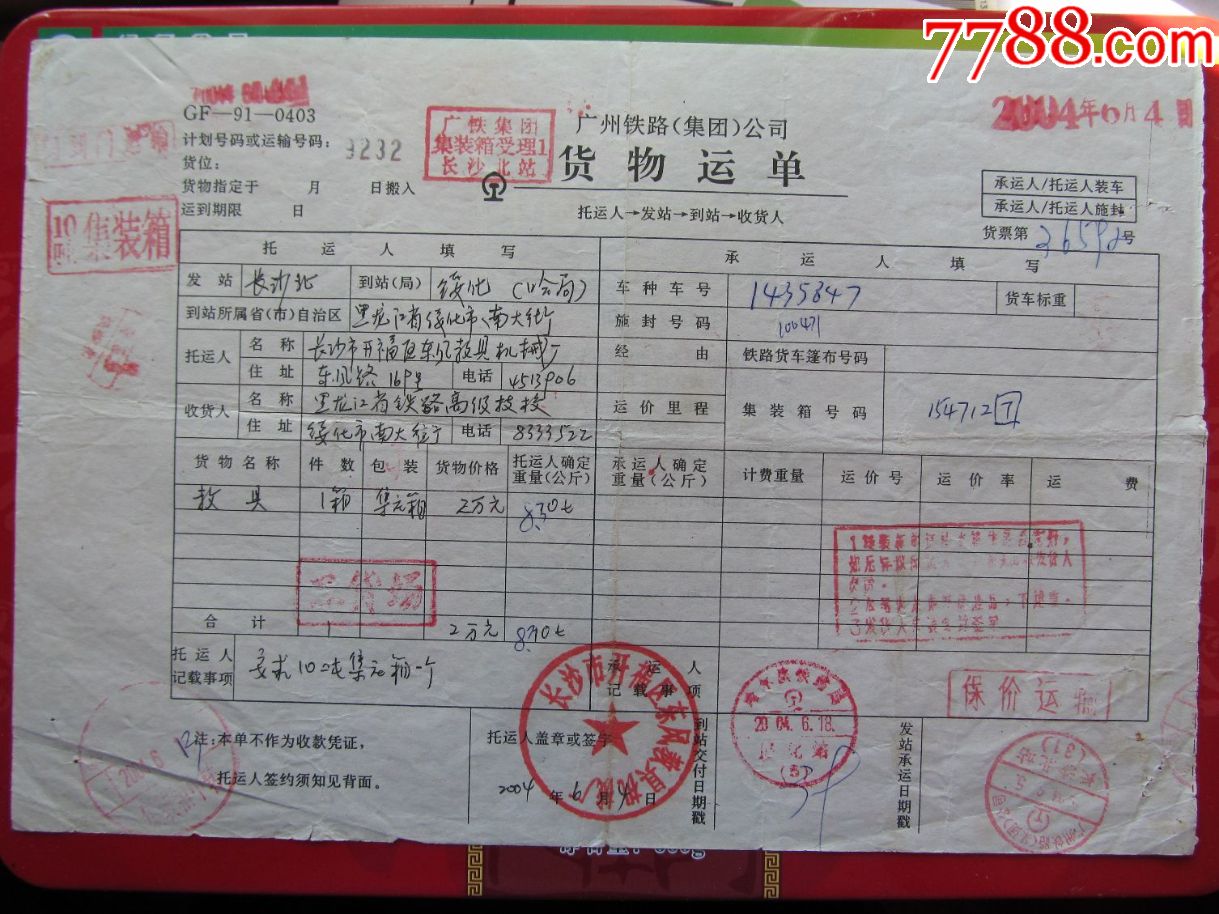 7788.com
2004年6月4日
GF—91—0403
计划号码或运输号码:
9232
货位:
货物指定于 月 日搬入
运到期限 日
广铁集团
集装箱受理1
长沙北站
广州铁路(集团)公司
货物运单
托运人→发站→到站→收货人
承运人/托运人装车
承运人/托运人施封
货票第 号
10吨 集装箱
托运人填写
承运人填写
发站 长沙北 到站(局) 绥化(哈局)
车种车号 1435847 货车标重
到站所属省(市)自治区 黑龙江省绥化市南大街
施封号码 100471
托运人 名称 长沙市开福区东风教具机械厂
经由 铁路货车篷布号码
住址 东风路169号 电话 4513906
收货人 名称 黑龙江省铁路高级技校
运价里程 集装箱号码 154712 7
住址 绥化市南大街 电话 8333522
货物名称 件数 包装 货物价格 托运人确定重量(公斤) 承运人确定重量(公斤) 计费重量 运价号 运价率 运费
教具 1箱 集元箱 2万元 8.30t
合计 2万元 8.30t
托运人记载事项 要求10吨集元箱一个
承运人记载事项
保价运输
长沙市开福区东风教具机械厂
2004.6.18.
注:本单不作为收款凭证,
托运人签约须知见背面。
托运人盖章或签字
2004年6月4日
到站交付日期戳
发站承运日期戳
长沙北站
(31)